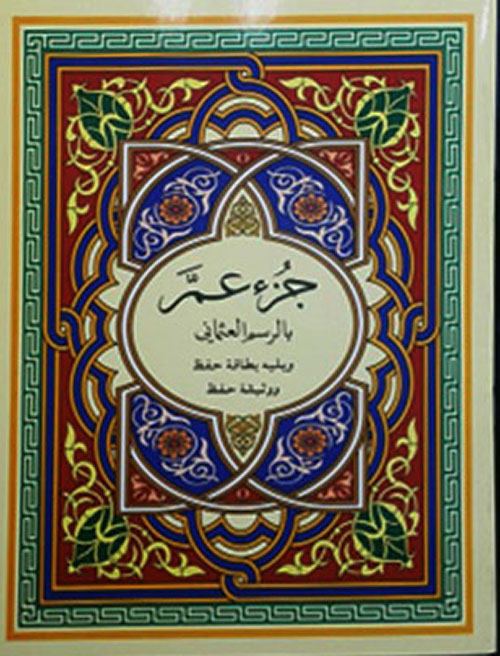 جُزْء عَمَّ
بالرسم العثماني
ويليه بطاقة حفظ
ووثيقة حفظ